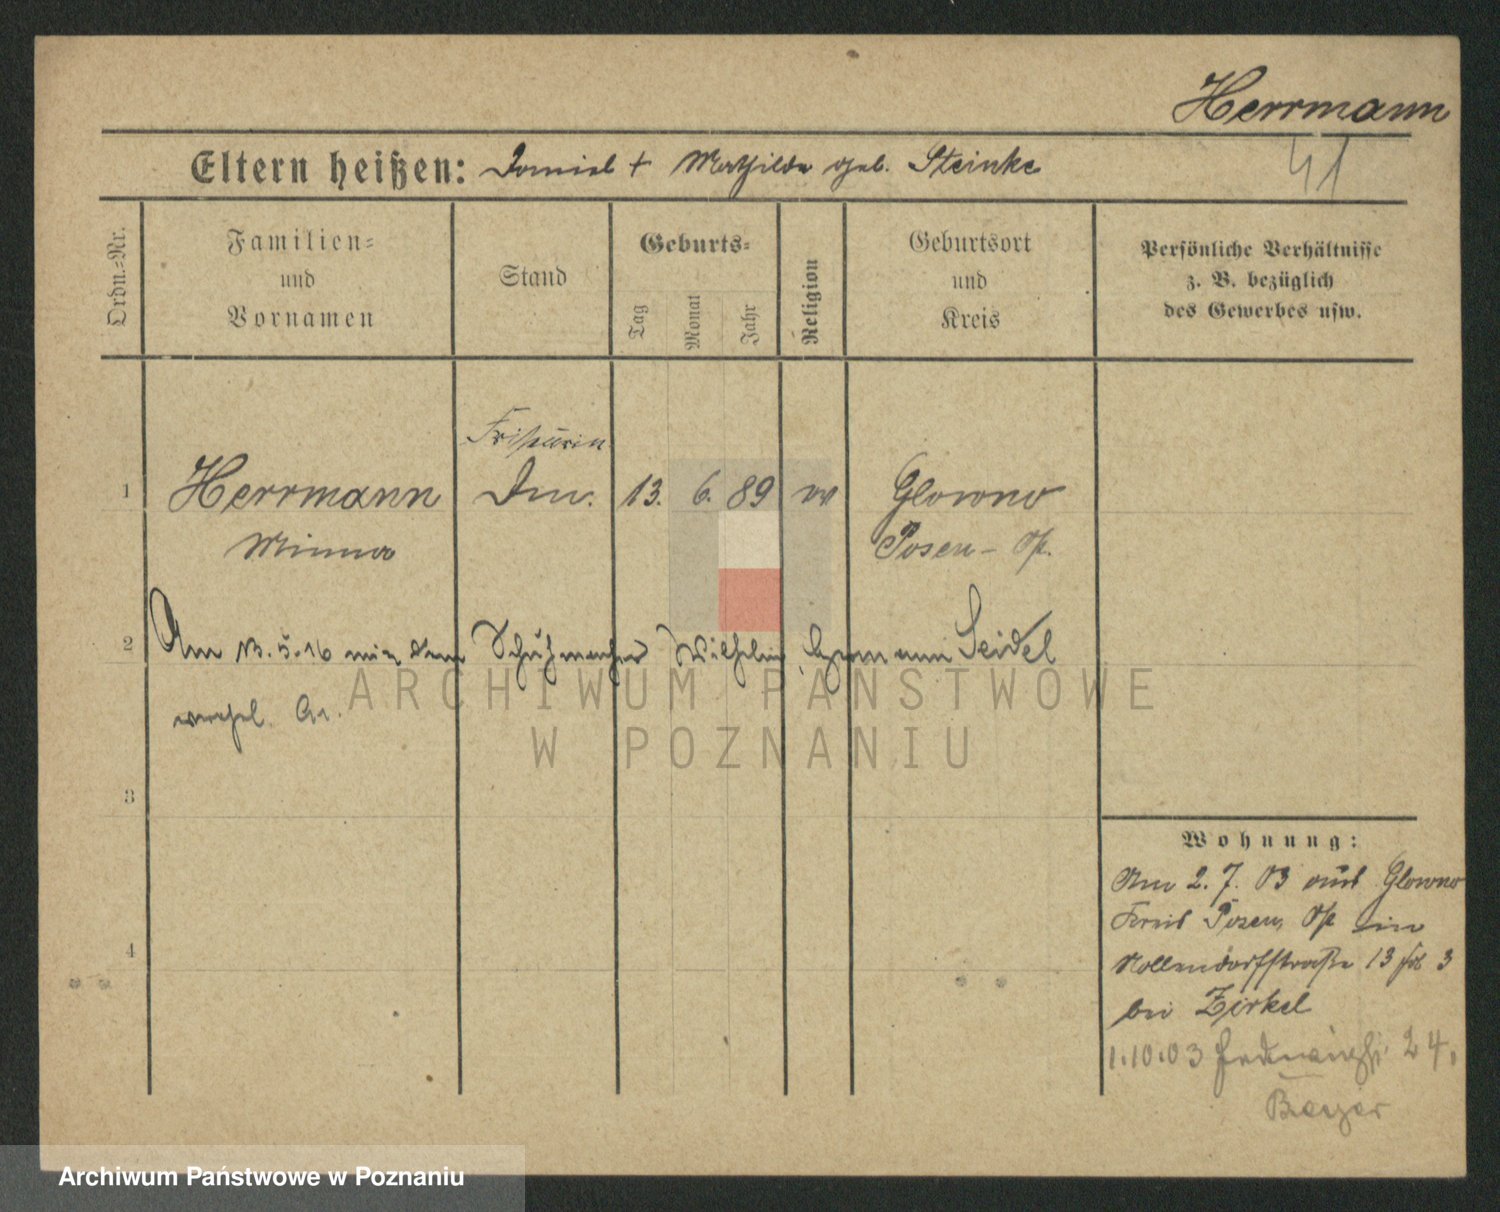 Herrmann
41
Eltern heißen: Daniel + Mathilde geb. Steinke
Ordn.-Nr.
Familien-
und
Vornamen
Stand
Geburts-
Tag
Monat
Jahr
Religion
Geburtsort
und
Kreis
Persönliche Verhältnisse
z. B. bezüglich
des Gewerbes usw.
Friseurin
1 Herrmann 13. 6. 89 ev Glowno
Minna Posen - Op.
2 Am 13.5.16 mit dem Schuhmacher Wilhelm Hermann Seidel
verehel.
ARCHIWUM PAŃSTWOWE
W POZNANIU
3
4
Wohnung:
Am 2. 7. 03 aus Glowno
Kreis Posen, Op in
Nollendorfstraße 13 3
bei Zirkel
1.10.03 24.
Archiwum Państwowe w Poznaniu